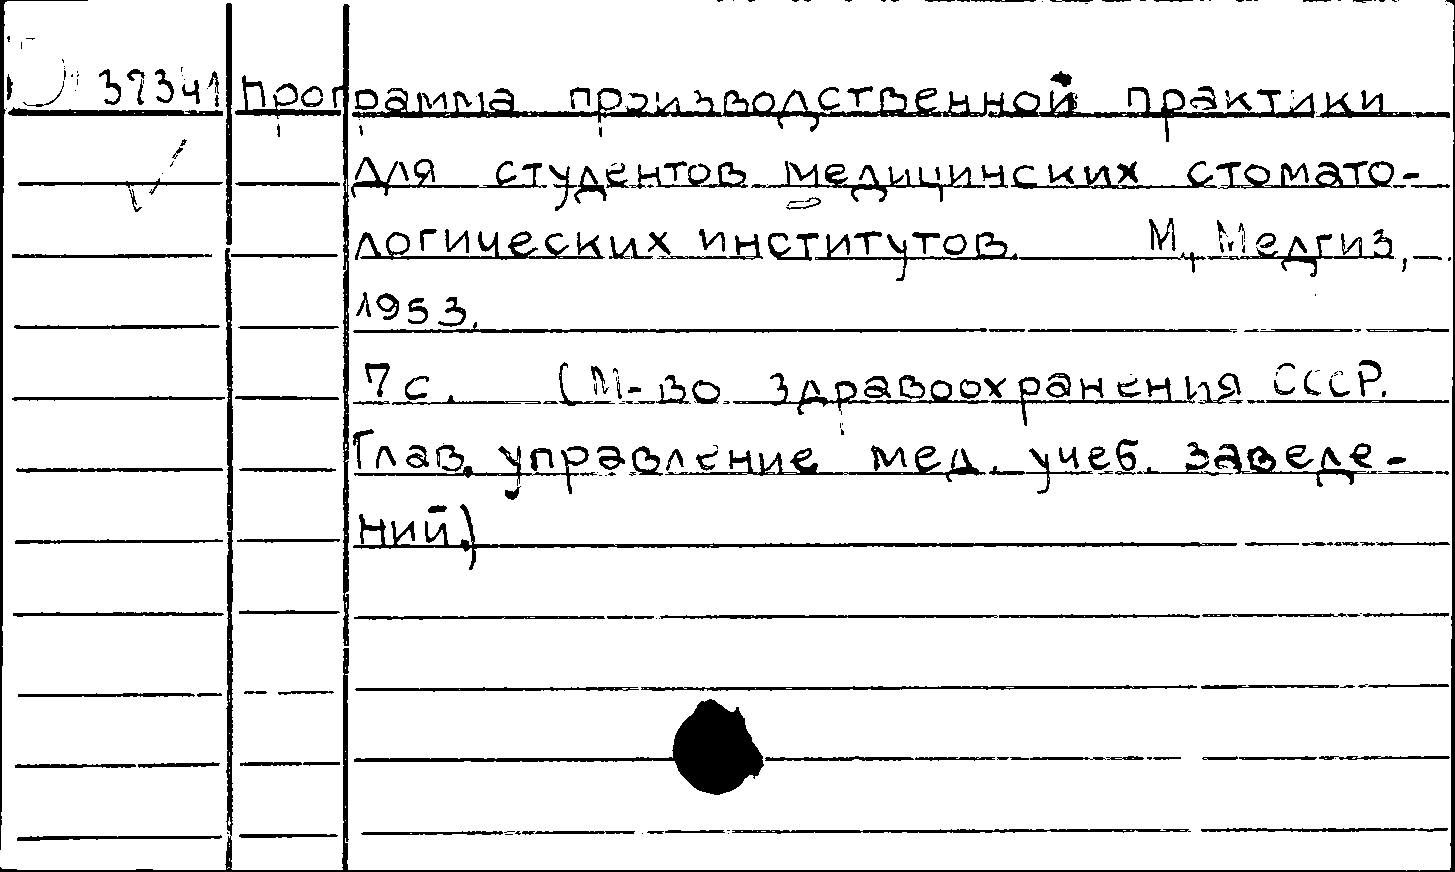 37341 Программа производственной практики
для студентов медицинских стомато-
логических институтов. М., Медгиз,
1953.
7 с. (М-во здравоохранения СССР.
Глав. управление мед. учеб. заведе-
ний.)